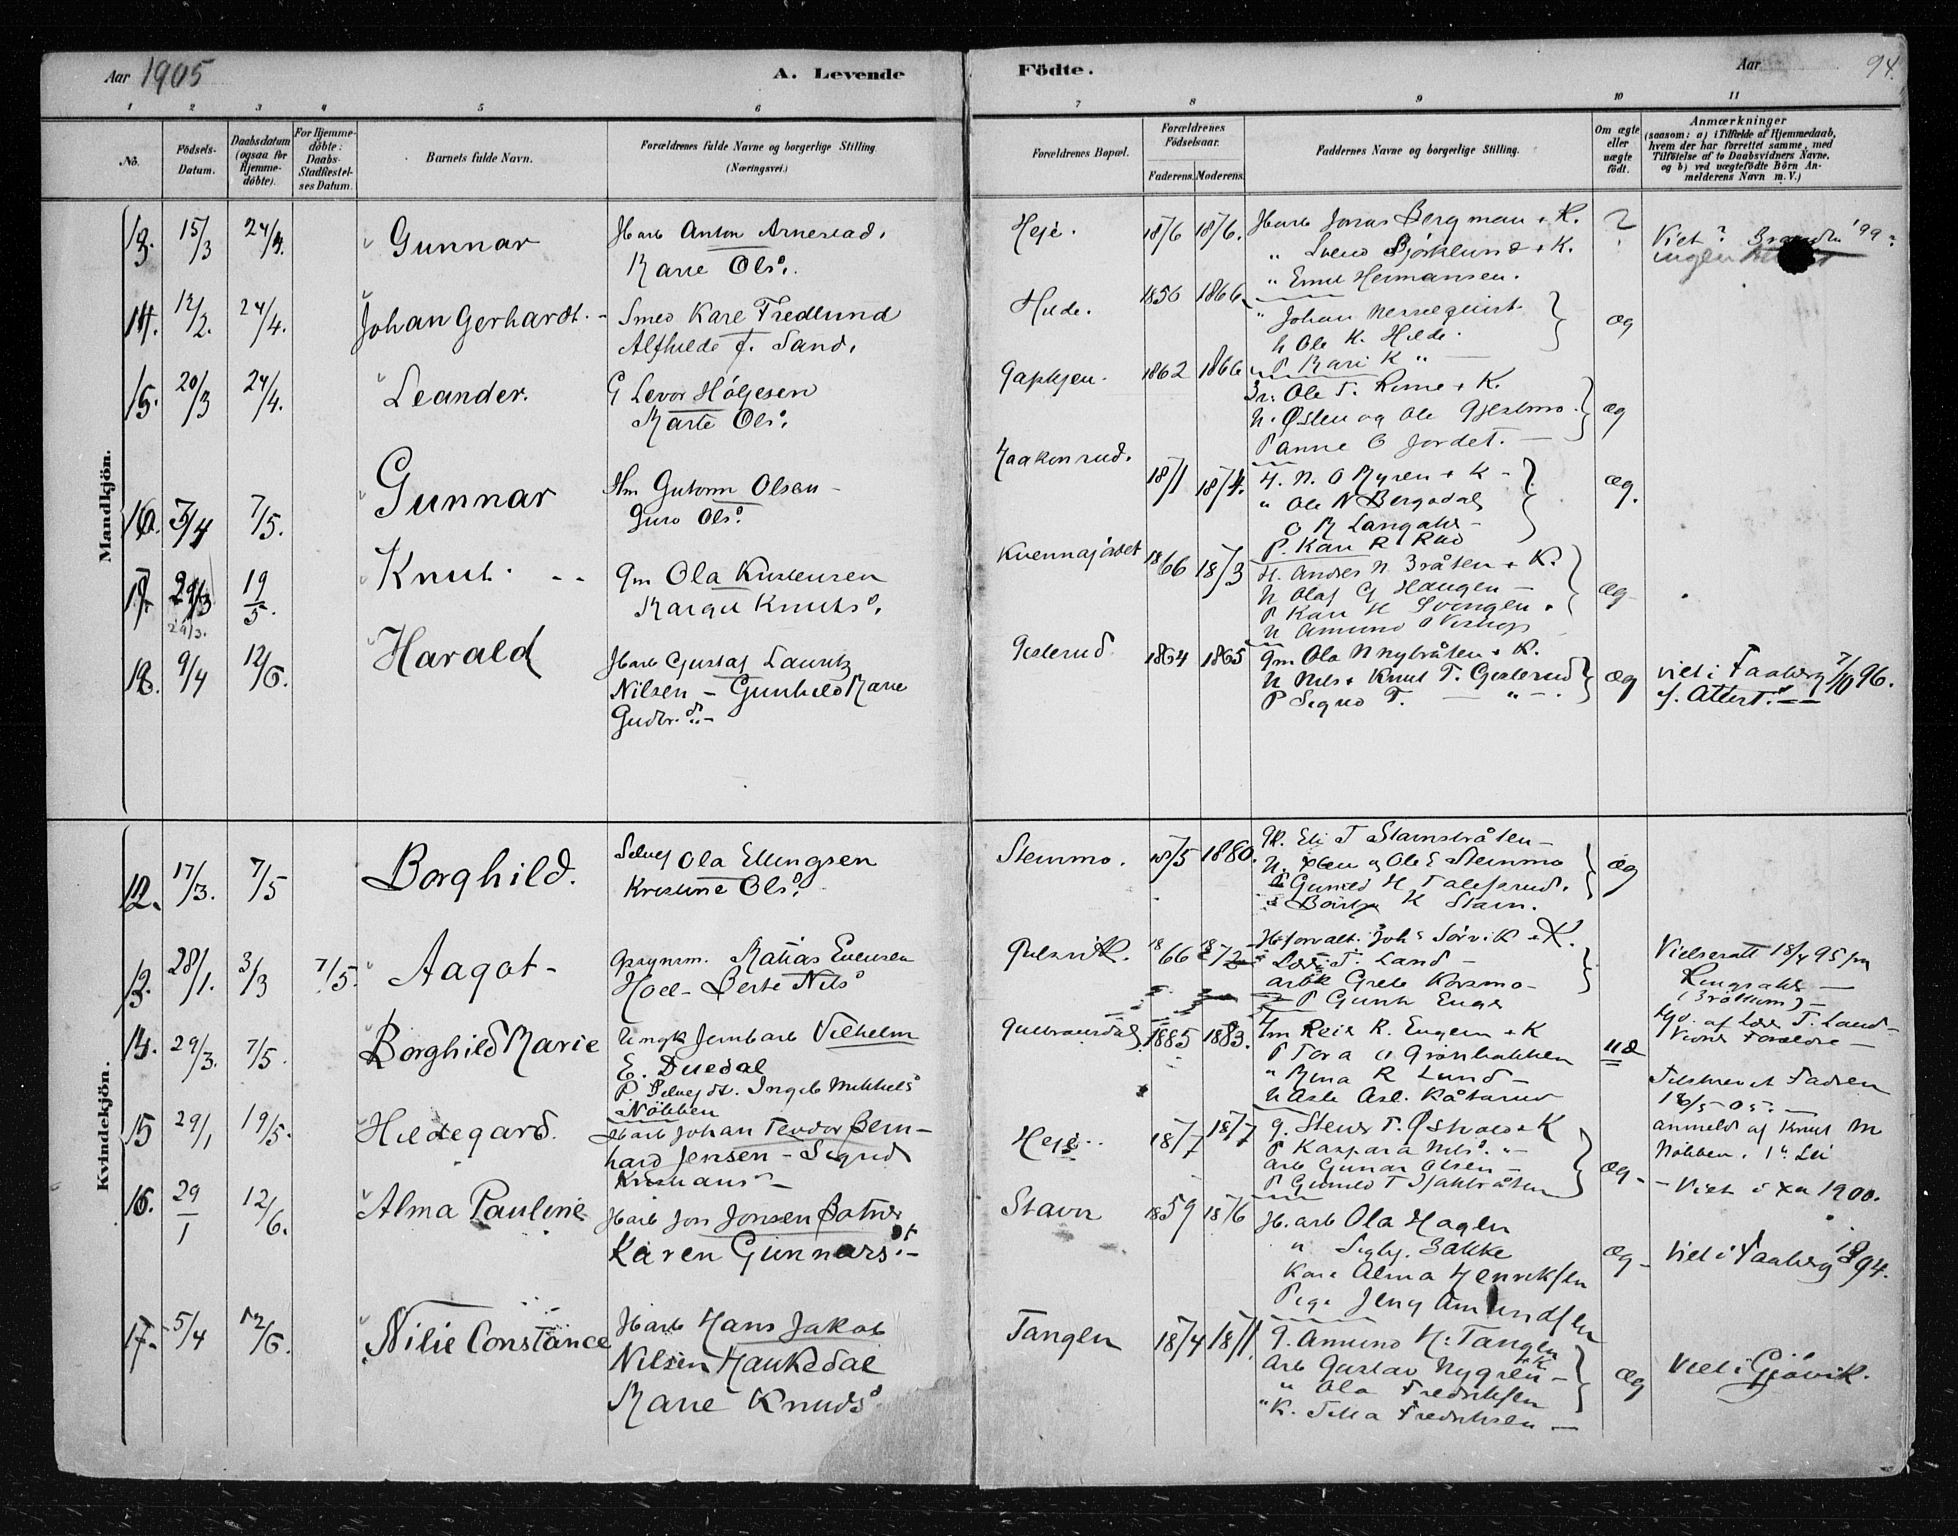 Aar 1905
A. Levende
Födte.
Aar
94.
1 2 3 4 5 6 7 8 9 10 11
No.
Födsels-
Datum.
Daabsdatum
(ogsaa for
Hjemme-
döbte).
For Hjemme-
döbte:
Daabs-
Stadfæstel-
ses Datum.
Barnets fulde Navn.
Forældrenes fulde Navne og borgerlige Stilling
(Næringsvei.)
Forældrenes Bopæl.
Forældrenes
Födselsaar.
Faderens. Moderens.
Faddernes Navne og borgerlige Stilling.
Om ægte
eller
uægte
født.
Anmærkninger
(saasom: a) i Tilfælde af Hjemmedaab,
hvem der har forrettet samme, med
Tilföielse af to Daabsvidners Navne,
og b) ved uægtefödte Börn An-
melderens Navn m. V.)
Mandkjön.
13. 15/3 24/4. Gunnar
Jbarb Anton Arnestad,
Marie Ols.
Heje. 1876 1876.
Jbarb Jonas Bergman + K.
" Svend Bjørklund + K.
" Emil Hermansen.
?
Viet? '99?
ingen
14. 12/2. 24/4. Johan Gerhardt.
Smed Kare Fredlund
Alfhilde f. Sand,
Hilde. 1850 1866
" Johan
h Ole K. Hilde.
P Kari K "
æg
15. 20/3 24/4. Leander.
G Levor Höljesen
Marte Ols.
1862 1866
Br. Ole T. Rime + K.
U. Østen og Ole
P Anne O Jordet.
æg
16. 3/4 7/5. Gunnar
Hm Gutorm Olsen
Guro Ols.
Haakonrud. 1871 1874.
H. N. O Myren + K
" Ole N Bergodal
O R
P. Kari R Rud
æg.
17. 29/3 19/5. Knut.
29/3.
Gm Ola Kristensen
Margit Knuts.
1866 1873
H. Anders N. Bråten + K.
U Olaf G Haugen
P Kari H
U Amund
æg
18. 9/4 12/6. Harald
Jbarb Gustaf Lauritz
Nilsen – Gunhild Marie
Gudbr.
Geslerud. 1864 1865
Gm Ola N Nybråten + K.
U Nils + Knut T. Geslerud
P Sigrid T. — " —
æg
viet i Faaberg 7/10 96.
f. Attest.
Kvindekjön.
12. 17/3. 7/5 Borghild.
Selvej Ola Ellingsen
Kristine Ols.
Stenmo. 1875 1880.
Gk. Eli T Stavnsbråten
U. og Ole E Stenmo
P Gunild H
K Stavn.
æg
13. 28/1. 3/3 7/5. Aagot
Matias Evensen
Hoel – Berte Nils
Gulsvik. 1866 1872
Hforvalt. Johs Sörvik + K.
T. Land
arbk Grete Korsmo
P Gunh Enger
Vielseratt 18/4 95 fra
Ringsaker
(Bröttum)
af T. Land
14. 29/3. 7/5. Borghild Marie
Ungk Jernbarb Vilhelm
E. Duedal
P Selvej dt. Ingeb Mikkels
Nöbben
Gulbrandsdal. 1885 1883.
Hm Reia R. Engem + K
P Tora Grönbakken
" Mina R Lund
U Asle Asl. Råtarud
uæ
Tilskrevet Fadren
18/5 05.
anmeldt af Knut M
Nöbben.
15 29/1 19/5. Hildegard.
Jbarb Johan Teodor Bern-
hard Jensen – Sigrid
Kristians
Heje. 1877 1877
G. Steur T. Østvold + K
P Kaspara Nils.
arb Gunar Olsen
P Gunild T
æg
Viet i Xa 1900.
16. 29/1 12/6. Alma Pauline
Jbarb Jon Jonsen Botner
Karen Gunnars.
Stavn 1859 1876
Jb. arb Ola Hagen
" Sigbj. Bakke
Kone Alma Henriksen
Pige Jeny Amundsen
æg
Viet i Faaberg 1894.
17. 5/4 12/6. Nilie Constance
Jbarb Hans Jakob
Nilsen Haukedal
Marie Knuds
Tangen 1874 1871
G. Amund H. Tangen
+ K.
Arb Gustav Nygren
" Ola Fredriksen
" K. Tilla Fredriksen
æg
Viet i Gjövik.